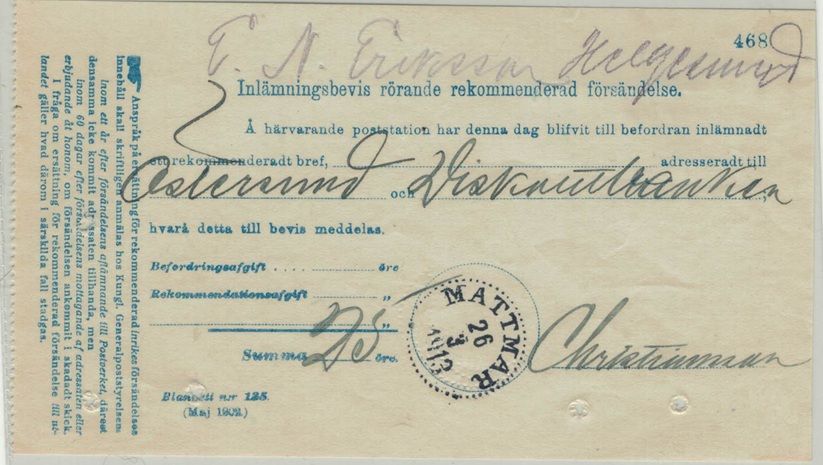 468
T. N. Eriksson Helgesund
Inlämningsbevis rörande rekommenderad försändelse.
Å härvarande poststation har denna dag blifvit till befordran inlämnadt
ett rekommenderadt bref, adresseradt till
Östersund och Diskontbanken,
hvarå detta till bevis meddelas.
Befordringsafgift .... öre
Rekommendationsafgift „
„
Summa 25 öre.
MATTMAR
26
3
1913
Christiansson
Blankett n:r 125.
(Maj 1902.)
Anspråk på ersättning för rekommenderad inrikes försändelses
innehåll skall skriftligen anmälas hos Kungl. Generalpoststyrelsen:
Inom ett år efter försändelsens aflämnande till Postverket, därest
densamma icke kommit adressaten tillhanda, men
inom 60 dagar efter försändelsens mottagande af adressaten eller
erbjudande åt honom, om försändelsen ankommit i skadadt skick.
I fråga om ersättning för rekommenderad försändelse till ut-
landet gäller hvad därom i särskilda fall stadgas.